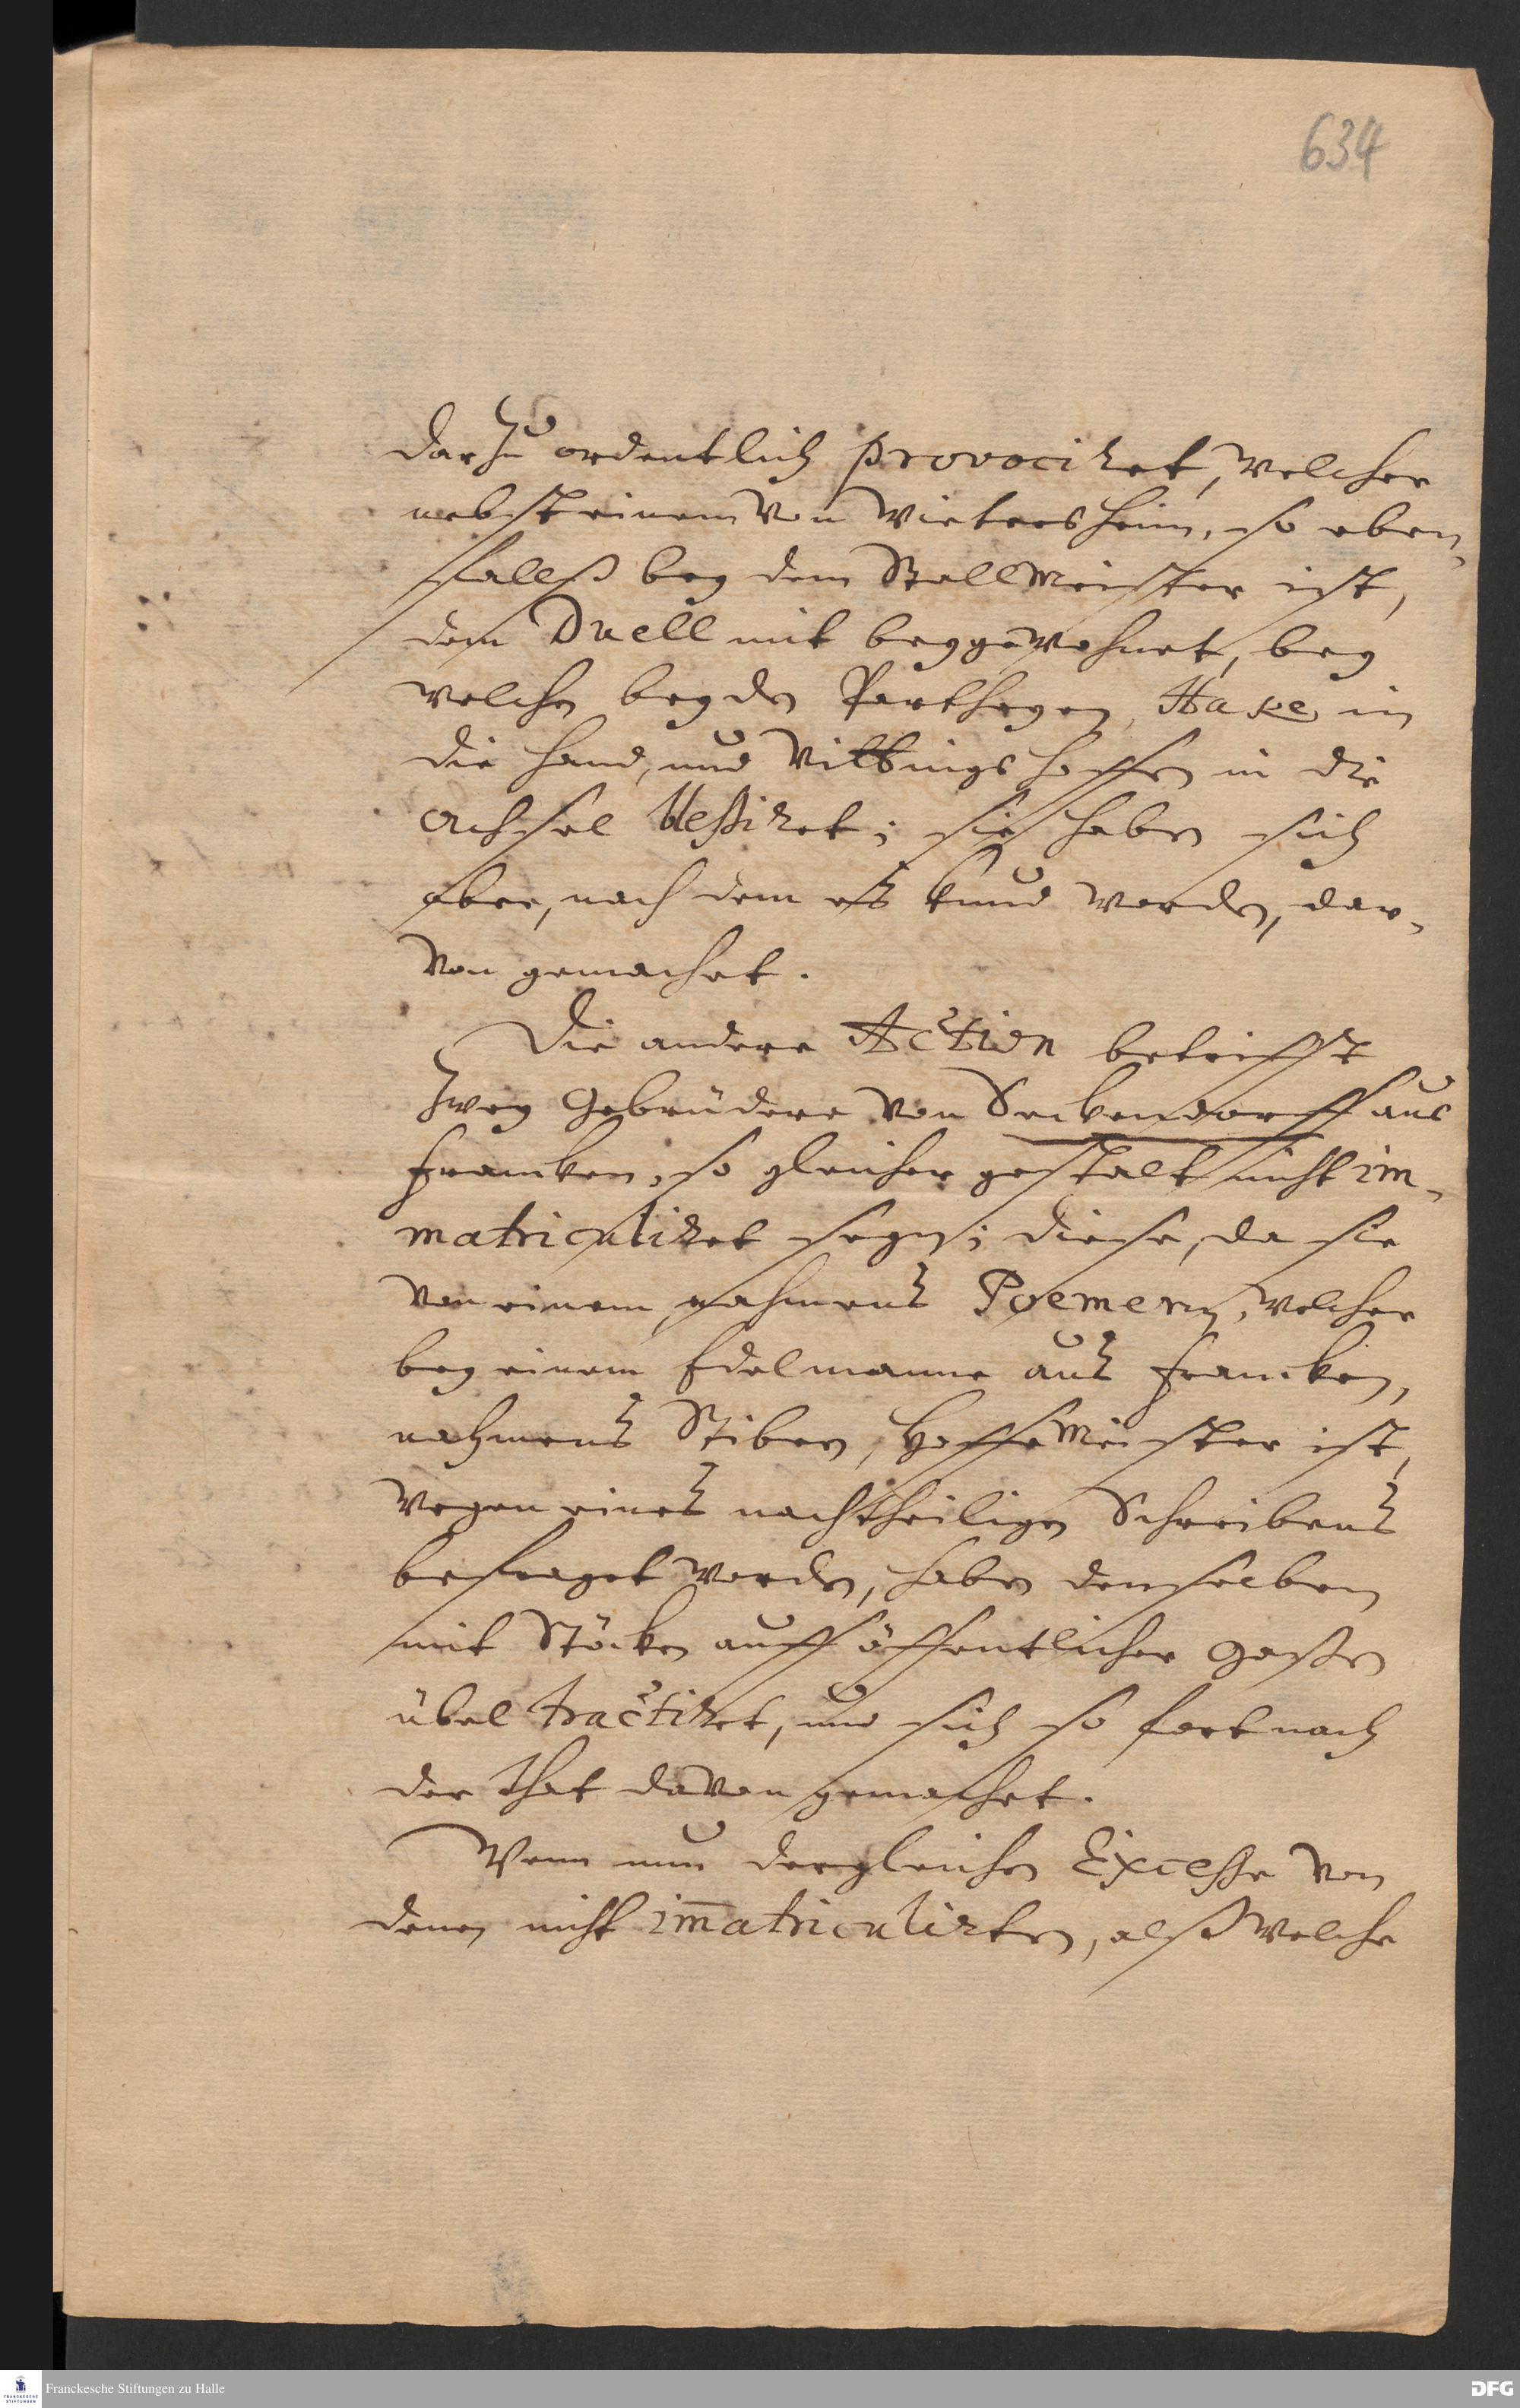 634
darzu ordentlich provociret, welcher
nebst einem von Wietersheim, so eben-
falls bey dem Stallmeister ist,
dem Duell mit beygewohnet, bey
welchen beyden Partheyen, Hake in
die Hand, und Vittinghoffen in die
Achsel blessiret; sie haben sich
aber, nach dem es kund worden, dar-
von gemachet.
Die andere Action betrifft
zwey Gebrüdere von Seckendorff aus
Francken, so gleicher gestalt nicht im-
matriculiret seyn; diese, da sie
von einem, nahmens Poemern, welcher
bey einem Edelmanne aus Francken,
nahmens Stiben, Hoffmeister ist,
wegen eines nachtheiligen Schreibens
befraget worden, haben denselben
mit Stöcken auff öffentlicher Gaßen
übel tractiret, und sich so fort nach
der that davon gemachet.
Wenn nun dergleichen Excesse von
denen nicht im̄atriculirten, alß welche
Franckesche Stiftungen zu Halle
FRANCKESCHE
STIFTUNGEN
DFG